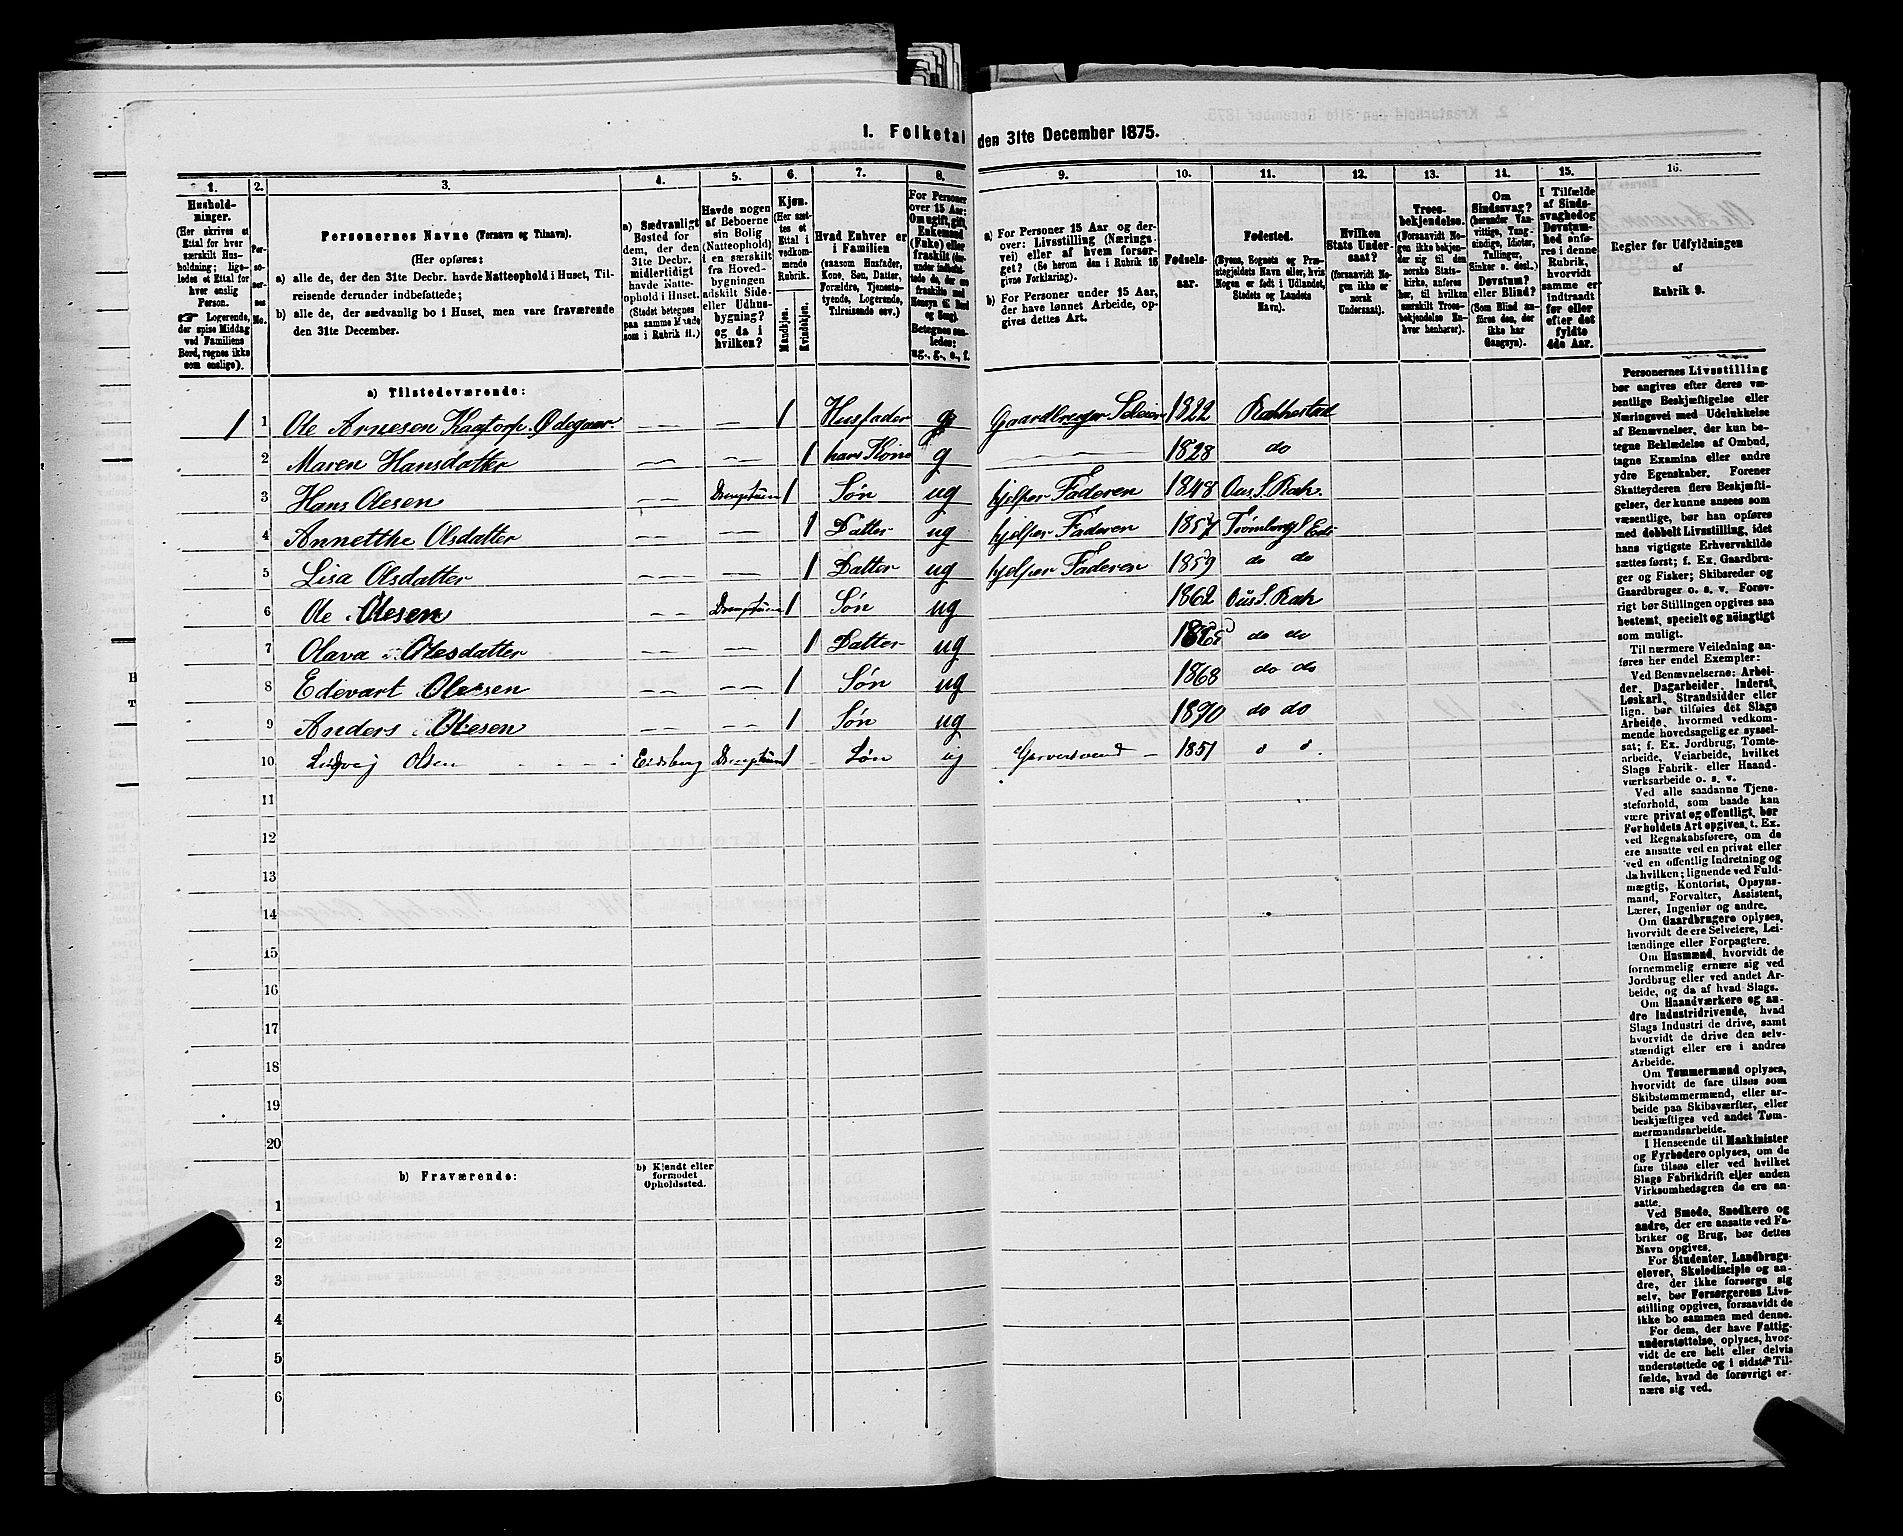 1. Folketal den 31te December 1875.
1. 2. 3. 4. 5. 6. 7. 8. 9. 10. 11. 12. 13. 14. 15. 16.
Husholdninger.
(Her skrives et
Ettal for hver
særskilt Husholdning; ligeledes et Ettal for
hver enslig
Person.
☞ Logerende,
der spise Middag
ved Familiens
Bord, regnes ikke
som enslige).
Personernes No.
Personernes Navne (Fornavn og Tilnavn).
(Her opføres:
a) alle de, der den 31te Decbr. havde Natteophold i Huset, Tilreisende derunder indbefattede;
b) alle de, der sædvanlig bo i Huset, men vare fraværende
den 31te December.
a) Sædvanligt
Bosted for
dem, der den
31te Decbr.
midlertidigt
havde Natteophold i Huset.
(Stedet betegnes
paa samme Maade
som i Rubrik 11.)
Havde nogen
af Beboerne
sin Bolig
(Natteophold)
i en særskilt
fra Hovedbygningen
adskilt Side-
eller Udhusbygning?
og da i
hvilken?
Kjøn.
(Her sættes et
Ettal i
vedkommende
Rubrik.
Mandkjøn.
Kvindekjøn.
Hvad Enhver er
i Familien
(saasom Husfader,
Kone, Søn, Datter,
Forældre, Tjenestetyende, Logerende,
Tilreisende osv.)
For Personer
over 15 Aar:
Om ugift, gift,
Enkemand
(Enke) eller
fraskilt
Betegnes saaledes:
ug., g., e., f.
a) For Personer 15 Aar og derover: Livsstilling (Næringsvei) eller af hvem forsørget? (Se herom den i Rubrik 16
givne Forklaring).
b) For Personer under 15 Aar,
der have lønnet Arbeide, opgives dettes Art.
Fødselsaar.
Fødested.
(Byens, Sognets og Præstegjeldets Navn eller, hvis
Nogen er født i Udlandet,
Stedets og Landets
Navn).
Hvilken
Stats Undersaat?
(forsaavidt Nogen ikke er
norsk
Undersaat).
Troesbekjendelse.
(Forsaavidt Nogen ikke bekjender sig til den
norske Statskirke, anføres
her, til hvilken
særskilt Troesbekjendelse Enhver henhører).
Om
Sindssvag?
(herunder Vanvittige, Tungsindige, Idioter,
Tullinger,
Sinker o. desl.)
Døvstum?
eller Blind?
(Som Blind anføres den, der
ikke har
Gangsyn).
I Tilfælde
af Sindssvaghed og
Døvstumhed anføres i denne
Rubrik,
hvorvidt
samme er
indtraadt
før eller
efter det
fyldte
4de Aar.
Regler for Udfyldningen
af
Rubrik 9.
a) Tilstedeværende:
1 1 Ole Arnesen Kaatorp Ødegaar 1 Husfader g Gaardbruger Seleier 1822 Rakkestad
2 Maren Hansdatter 1 hans Kone g 1828 do
3 Hans Olesen 1 Søn ug hjelper Faderen 1848 Ous S. Rak.
4 Annetthe Olsdatter 1 Datter ug hjelper Faderen 1857 Trømborg S.
5 Lisa Olsdatter 1 Datter ug hjelper Faderen 1859 do do
6 Ole Olesen 1 Søn ug 1862 Ous S. Rak
7 Olava Olesdatter 1 Datter ug do do
8 Edevart Olesen 1 Søn ug 1868 do do
9 Anders Olesen 1 Søn ug 1870 do do
10 Ludvig Olsen Eidsberg 1 Søn ug Garversvend 1851
11
12
13
14
15
16
17
18
19
20
b) Fraværende:
b) Kjendt eller
formodet
Opholdssted.
1
2
3
4
5
6
Personernes Livsstilling
bør angives efter deres væsentlige Beskjæftigelse eller
Næringsvei med Udelukkelse
af Benævnelser, der kun betegne Beklædelse af Ombud,
tagne Examina eller andre
ydre Egenskaber. Forener
Skatteyderen flere Beskjæftigelser, der kunne ansees som
væsentlige, bør han opføres
med dobbelt Livsstilling, idet
hans vigtigste Erhvervskilde
sættes først; f. Ex. Gaardbruger og Fisker; Skibsreder og
Gaardbruger o. s. v. Forøvrigt bør Stillingen opgives saa
bestemt, specielt og nøiagtigt
som muligt.
Til nærmere Veiledning anføres her endel Exempler:
Ved Benævnelserne: Arbeider, Dagarbeider, Inderst,
Løskarl, Strandsidder eller
lign. bør tilføies det Slags
Arbeide, hvormed vedkommende hovedsagelig er sysselsat; f. Ex. Jordbrug, Tomtearbeide, Veiarbeide, hvilket
Slags Fabrik- eller Haandværksarbeide o. s. v.
Ved alle saadanne Tjenesteforhold, som baade kan
være privat og offentligt, bør
Forholdets Art opgives, t. Ex.
ved Regnskabsførere, om de
ere ansatte ved en privat eller
ved en offentlig Indretning og
da hvilken; lignende ved Fuldmægtig, Kontorist, Opsynsmand, Forvalter, Assistent,
Lærer, Ingeniør og andre.
Om Gaardbrugere oplyses,
hvorvidt de ere Selveiere, Leilændinge eller Forpagtere.
Om Husmænd, hvorvidt de
fornemmelig ernære sig ved
Jordbrug eller ved andet Arbeide, og da af hvad Slags.
Om Haandværkere og andre Industridrivende, hvad
Slags Industri de drive, samt
hvorvidt de drive den selvstændigt eller ere i andres
Arbeide.
Om Tømmermænd oplyses,
hvorvidt de fare tilsøs som
Skibstømmermænd, eller arbeide paa Skibsværfter, eller
beskjæftiges ved andet Tømmermandsarbeide.
I Henseende til Maskinister
og Fyrbødere oplyses, om de
fare tilsøs eller ved hvilket
Slags Fabrikdrift eller anden
Virksomhedsgren de ere ansatte.
Ved Smede, Snedkere og
andre, der ere ansatte ved Fabriker og Brug, bør dettes
Navn opgives.
For Studenter, Landbrugselever, Skoledisciple og andre, der ikke forsørge sig
selv, bør Forsørgerens Livsstilling opgives, forsaavidt de
ikke bo sammen med denne.
For dem, der have Fattigunderstøttelse, oplyses, hvorvidt de ere helt eller delvis
understøttede og i sidste Tilfælde, hvad de forøvrigt ernære sig ved.